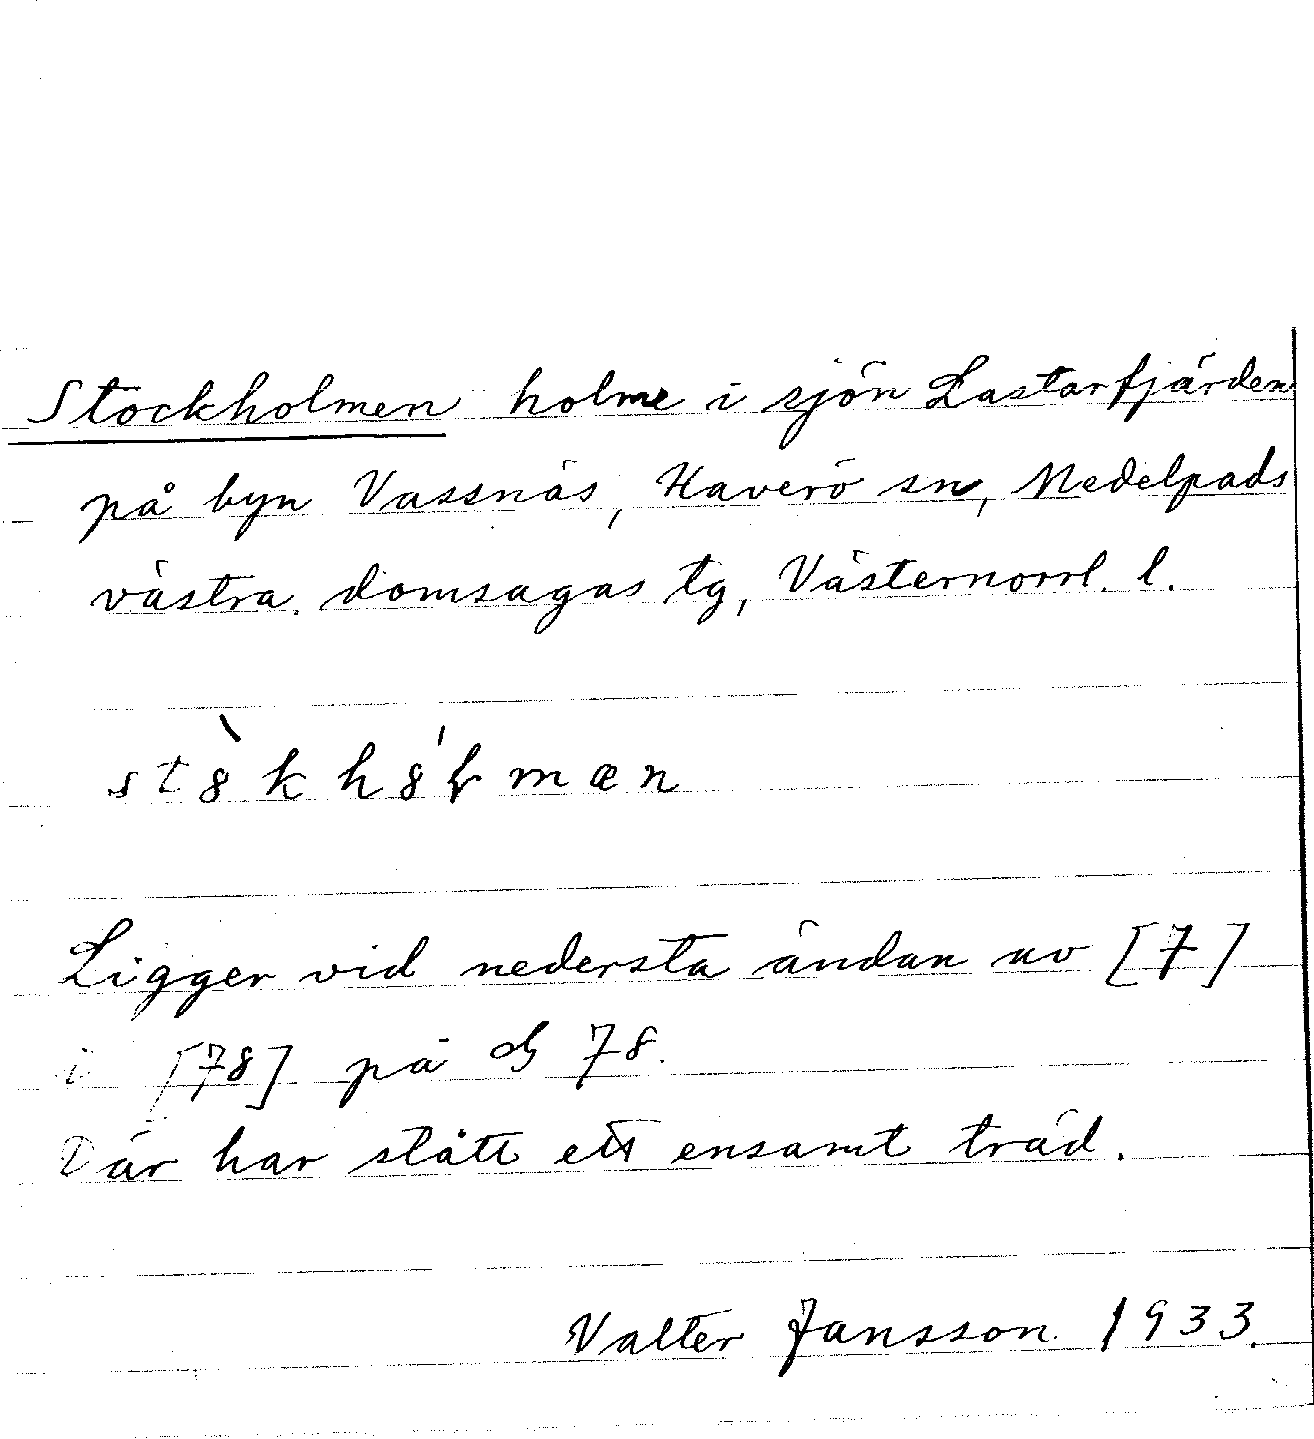 Stockholmen holme i sjön Lastarfjärden
på byn Vassnäs, Haverö sn, Medelpads
västra. domsagas tg, Västernorrl. l.
Ligger vid nedersta ändan av [7]
i [78] på 78.
Där har stått ett ensamt träd.
Valter Jansson 1933.